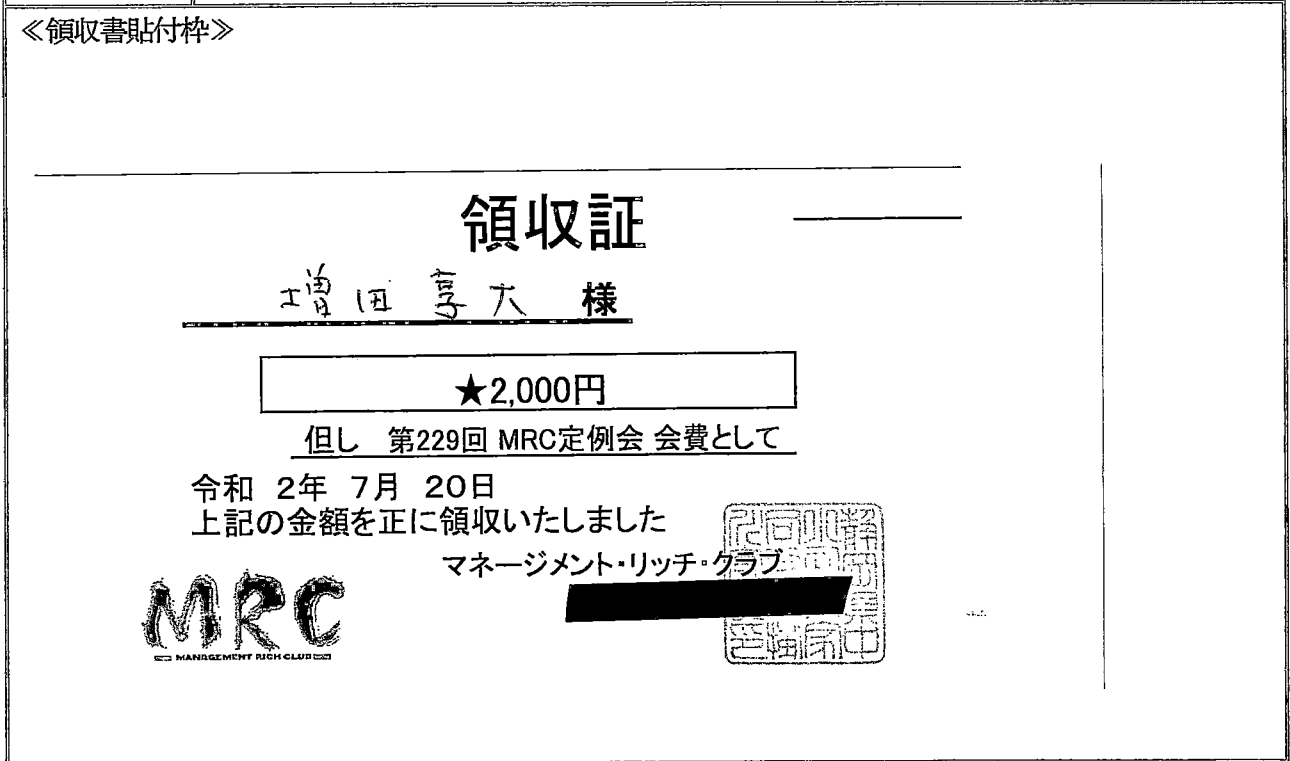 ≪領収書貼付枠≫
領収証
増田享大 様
★2,000円
但し 第229回 MRC定例会 会費として
令和 2年 7月 20日
上記の金額を正に領収いたしました
マネージメント・リッチ・クラブ
MRC
MANAGEMENT RICH CLUB